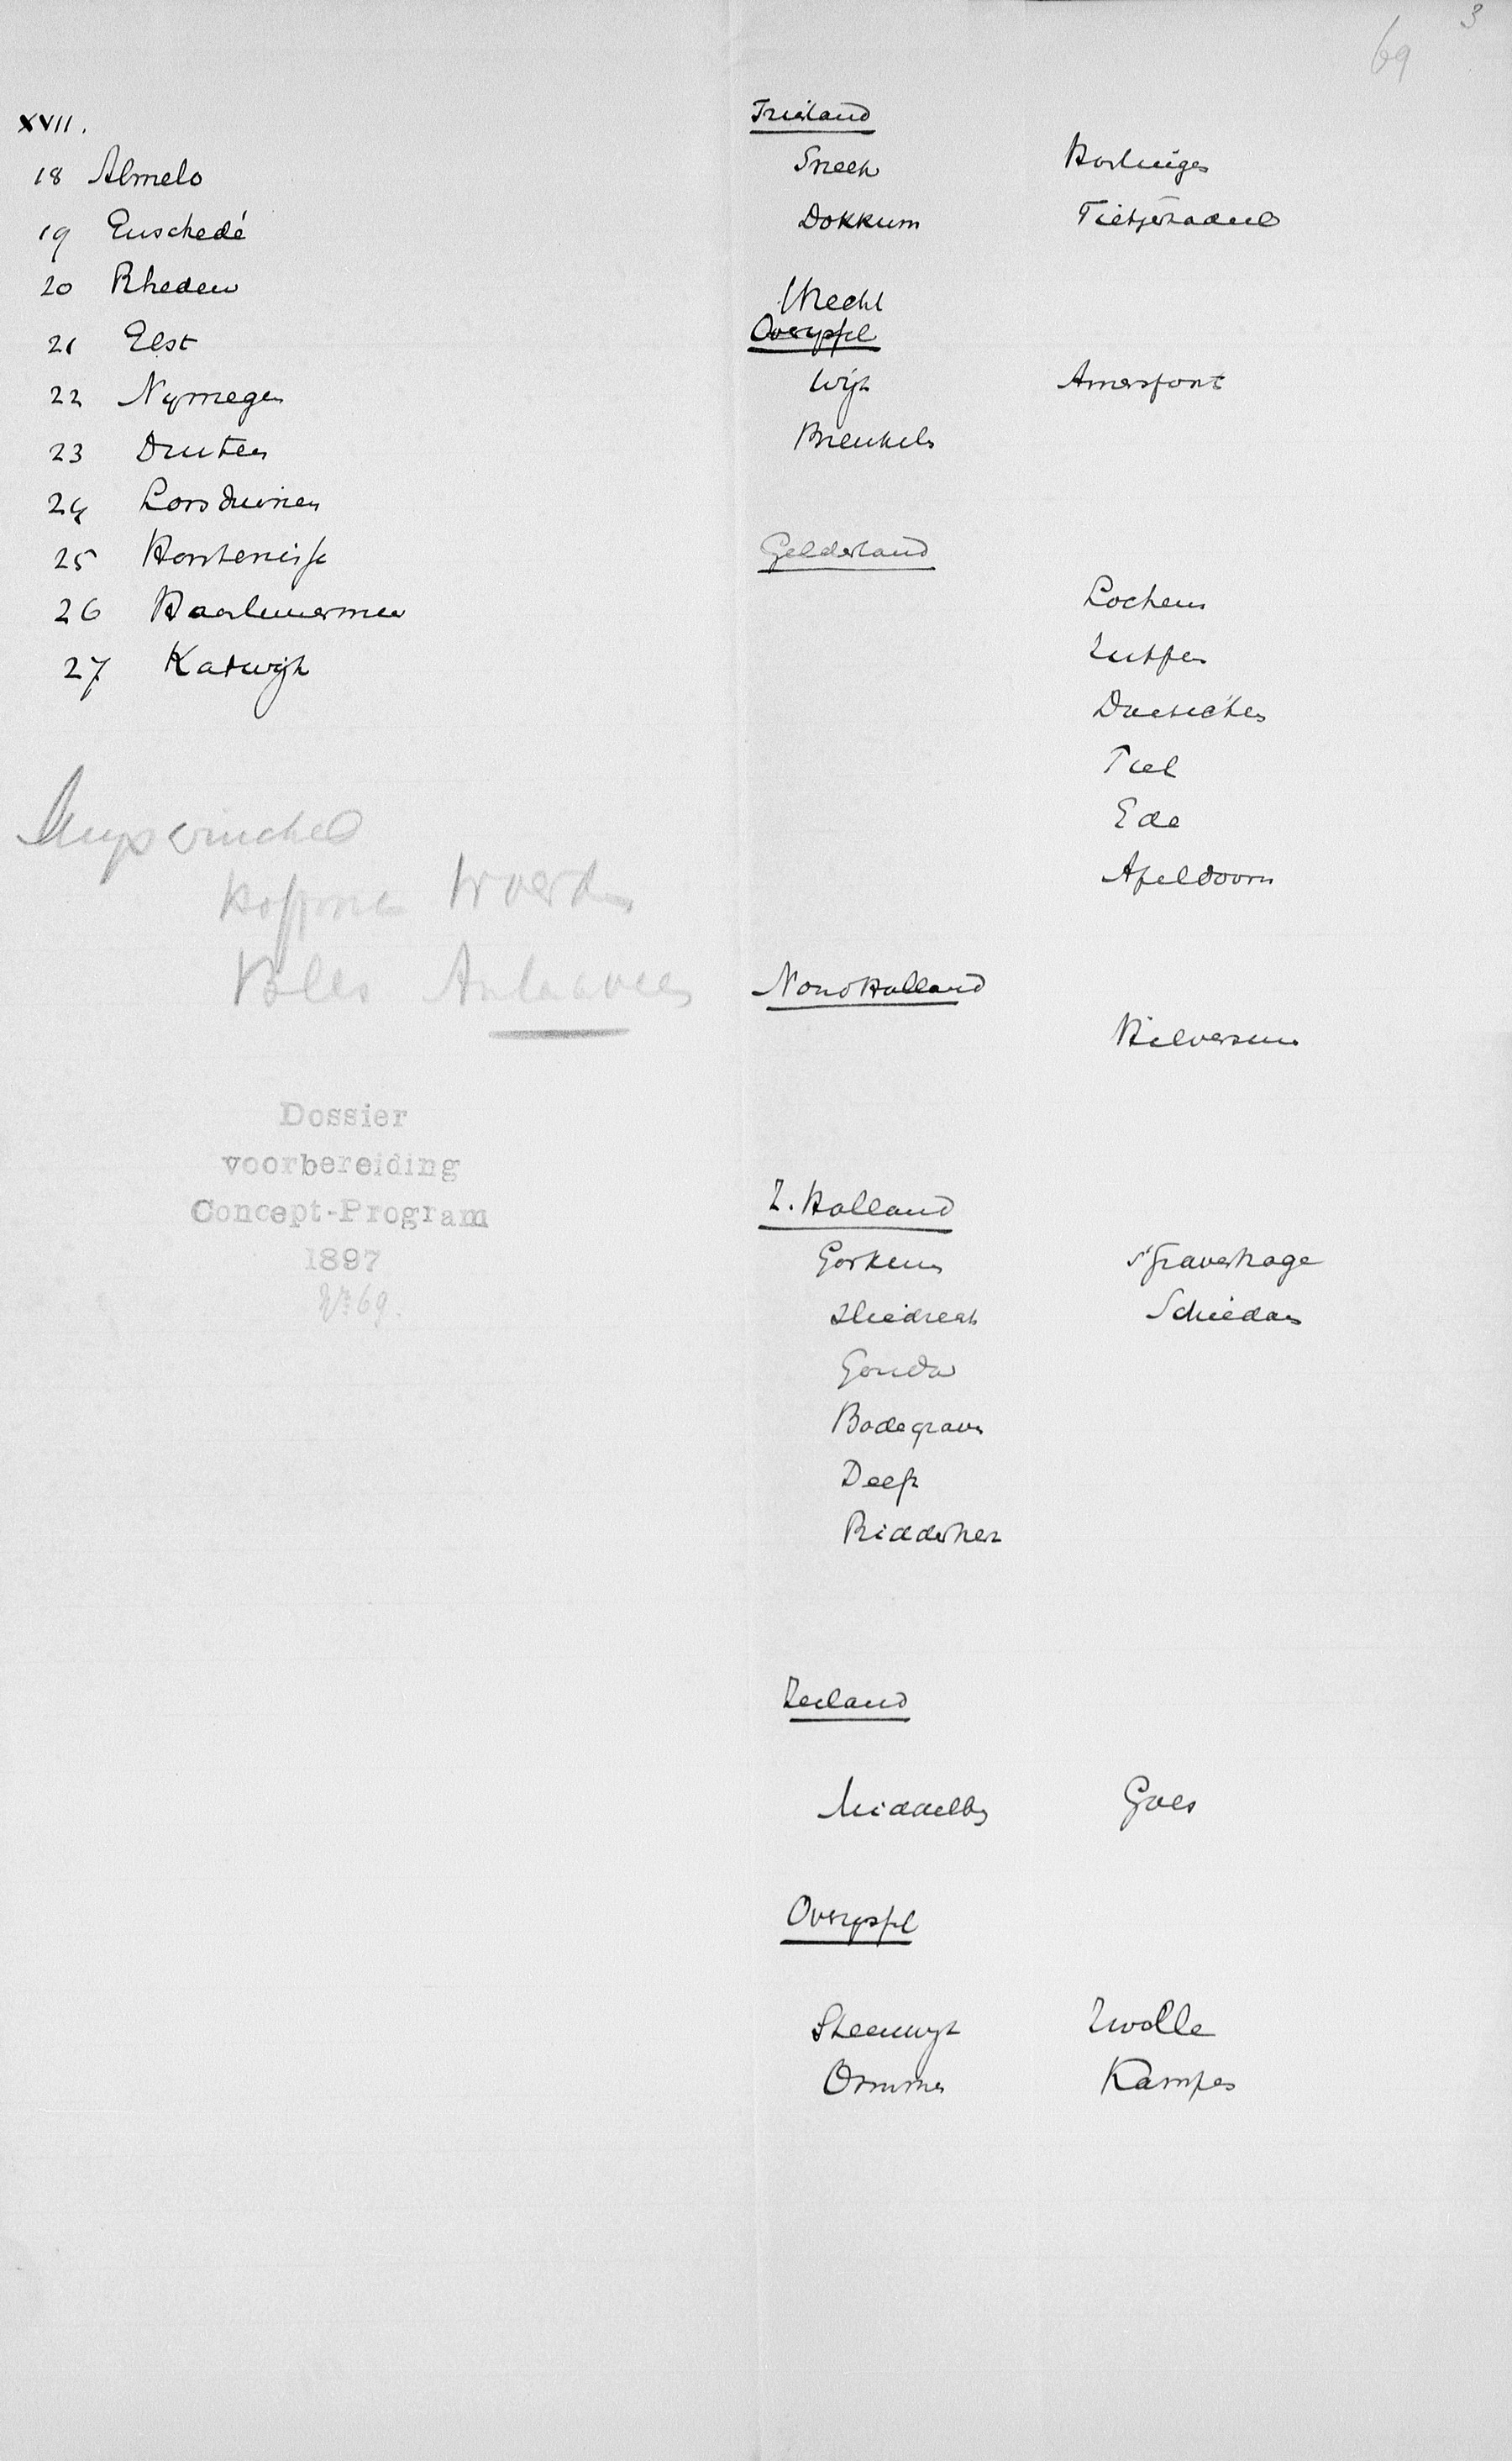 3
69
XVII.
18 Almelo
19 Enschedé
20 Rheden
21 Elst
22 Nymegen
23 Druten
24 Losduinen
25
26 Haarlemmermeer
27 Katwijk
Woerden
Dossier
voorbereiding
Concept-Program
1897
No 69.
Friesland
Sneek Harlingen
Dokkum
Utrecht
Overyssel
Wijk Amersfoort
Breukeln
Gelderland
Lochem
Zutfen
Tiel
Ede
Apeldoorn
Noord Holland
Hilversum
Z. Holland
Gorkum s'Gravenhage
Sliedrecht Schiedam
Gouda
Bodegraven
Delft
Ridderkerk
Zeeland
Middelbg Goes
Overyssel
Steenwyk Zwolle
Ommen Kampen